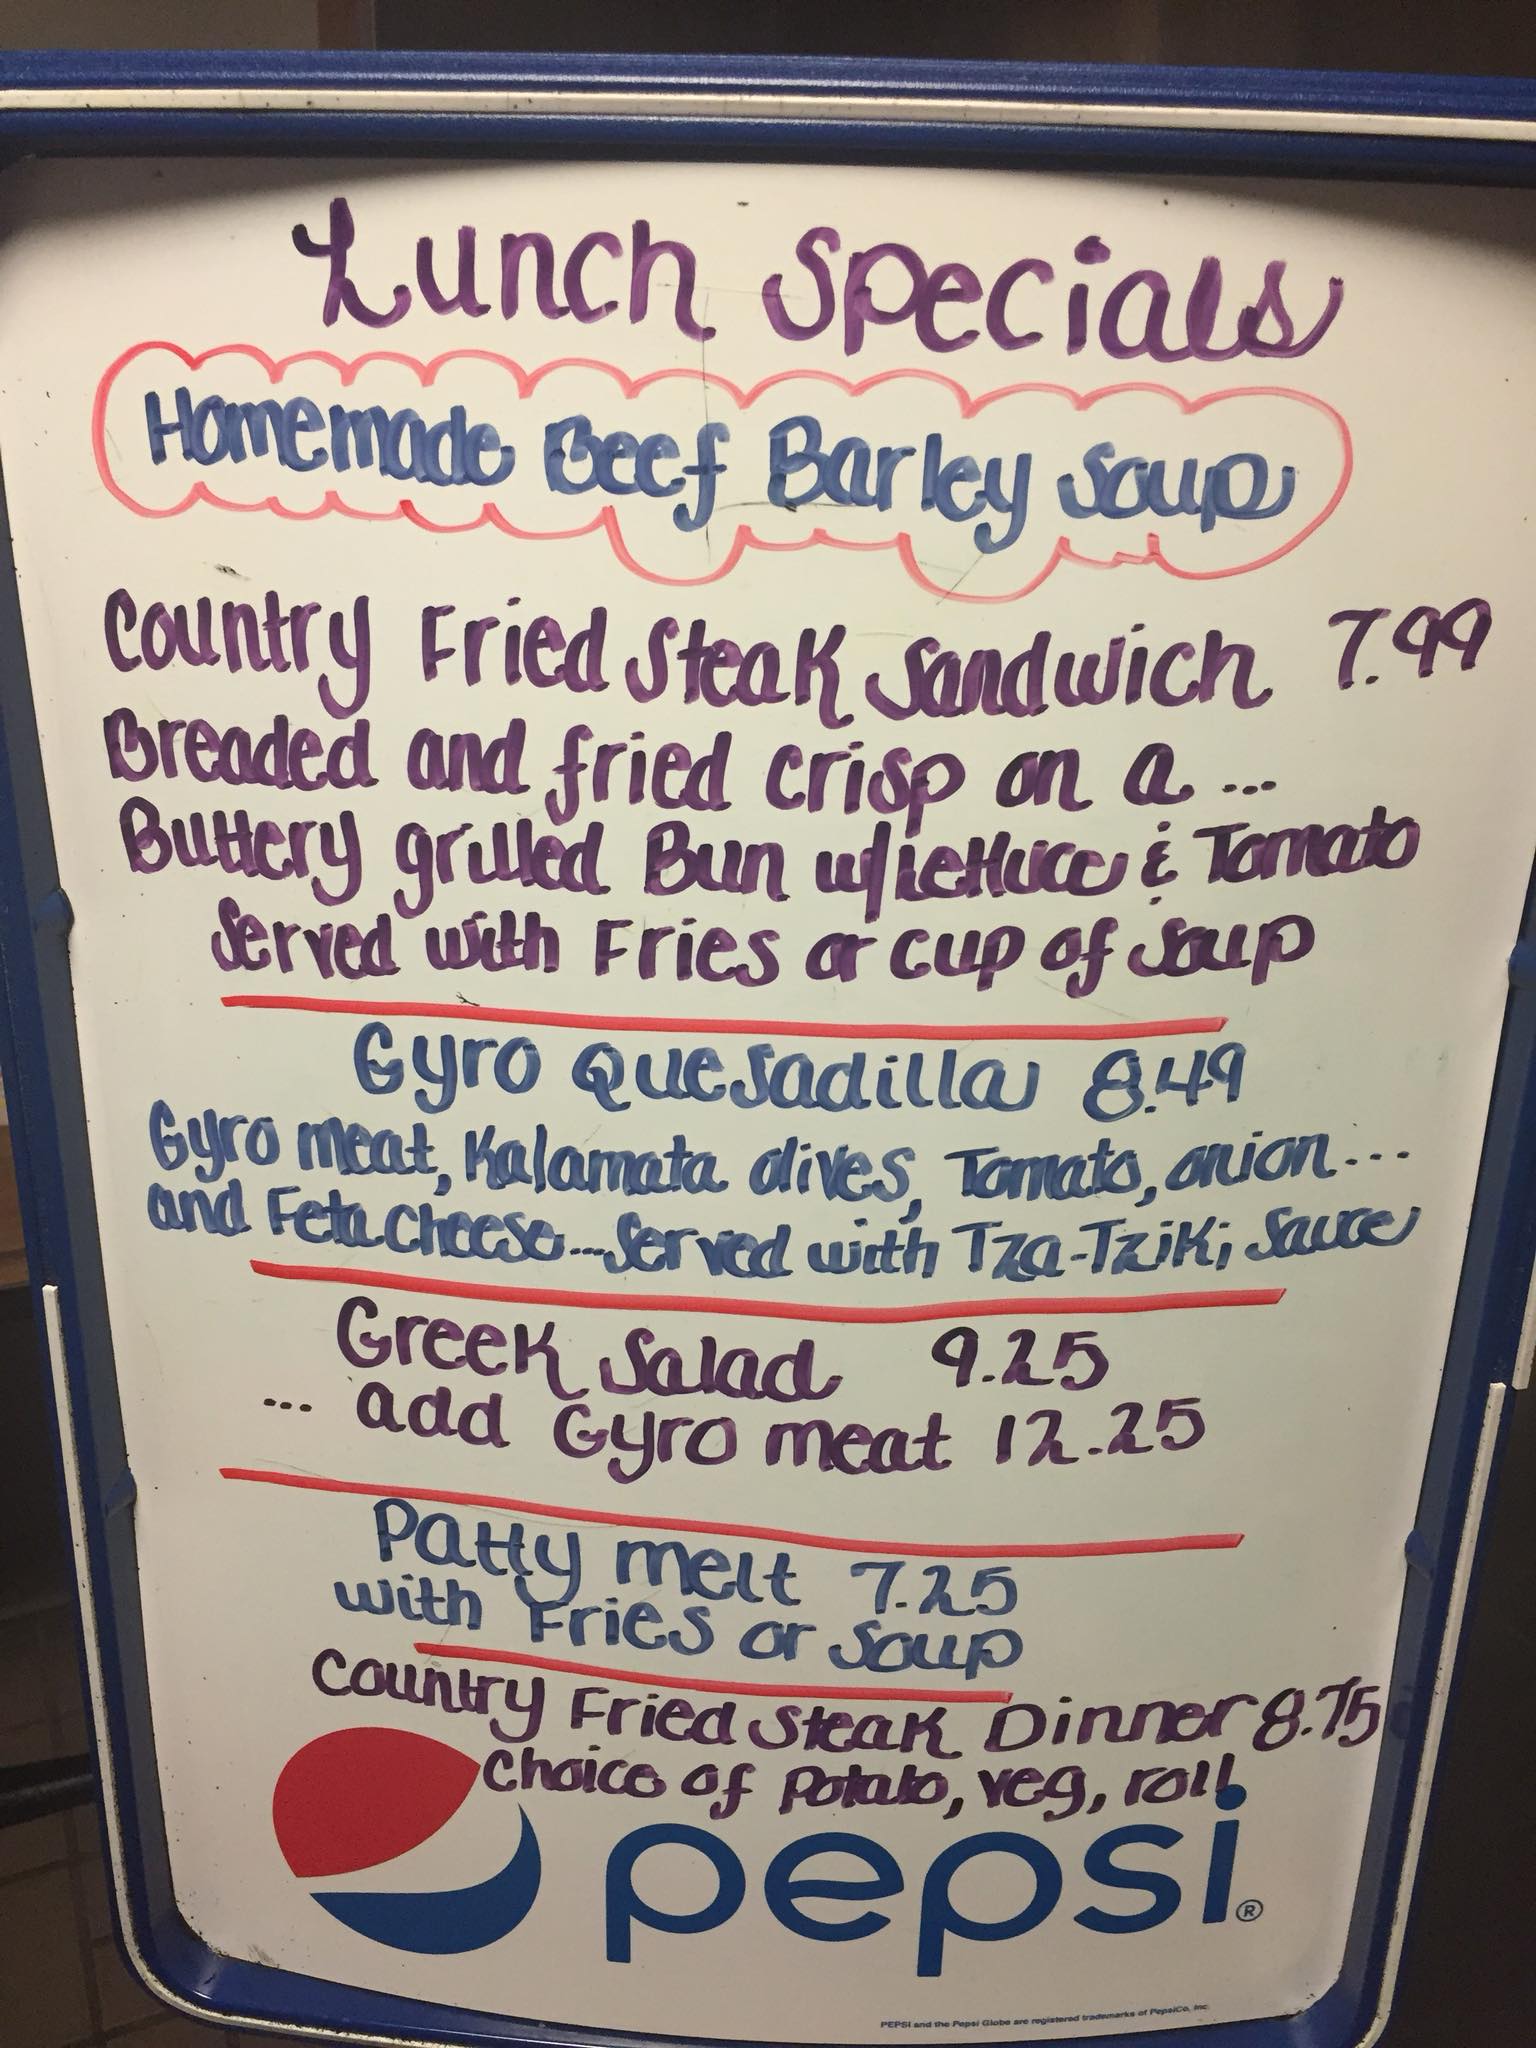 Lunch Specials
Homemade Beef Barley Soup
Country Fried Steak Sandwich 7.99
Breaded and fried crisp on a ...
Buttery grilled Bun w/Lettuce & Tomato
Served with Fries or cup of Soup
Gyro Quesadilla 8.49
Gyro meat, Kalamata olives, Tomato, onion...
and Feta Cheese...Served with Tza-Tziki Sauce
Greek Salad 9.25
... add Gyro meat 12.25
Patty melt 7.25
with Fries or Soup
Country Fried Steak Dinner 8.75
Choice of Potato, veg, roll
pepsi®
PEPSI and the Pepsi Globe are registered trademarks of PepsiCo, Inc.